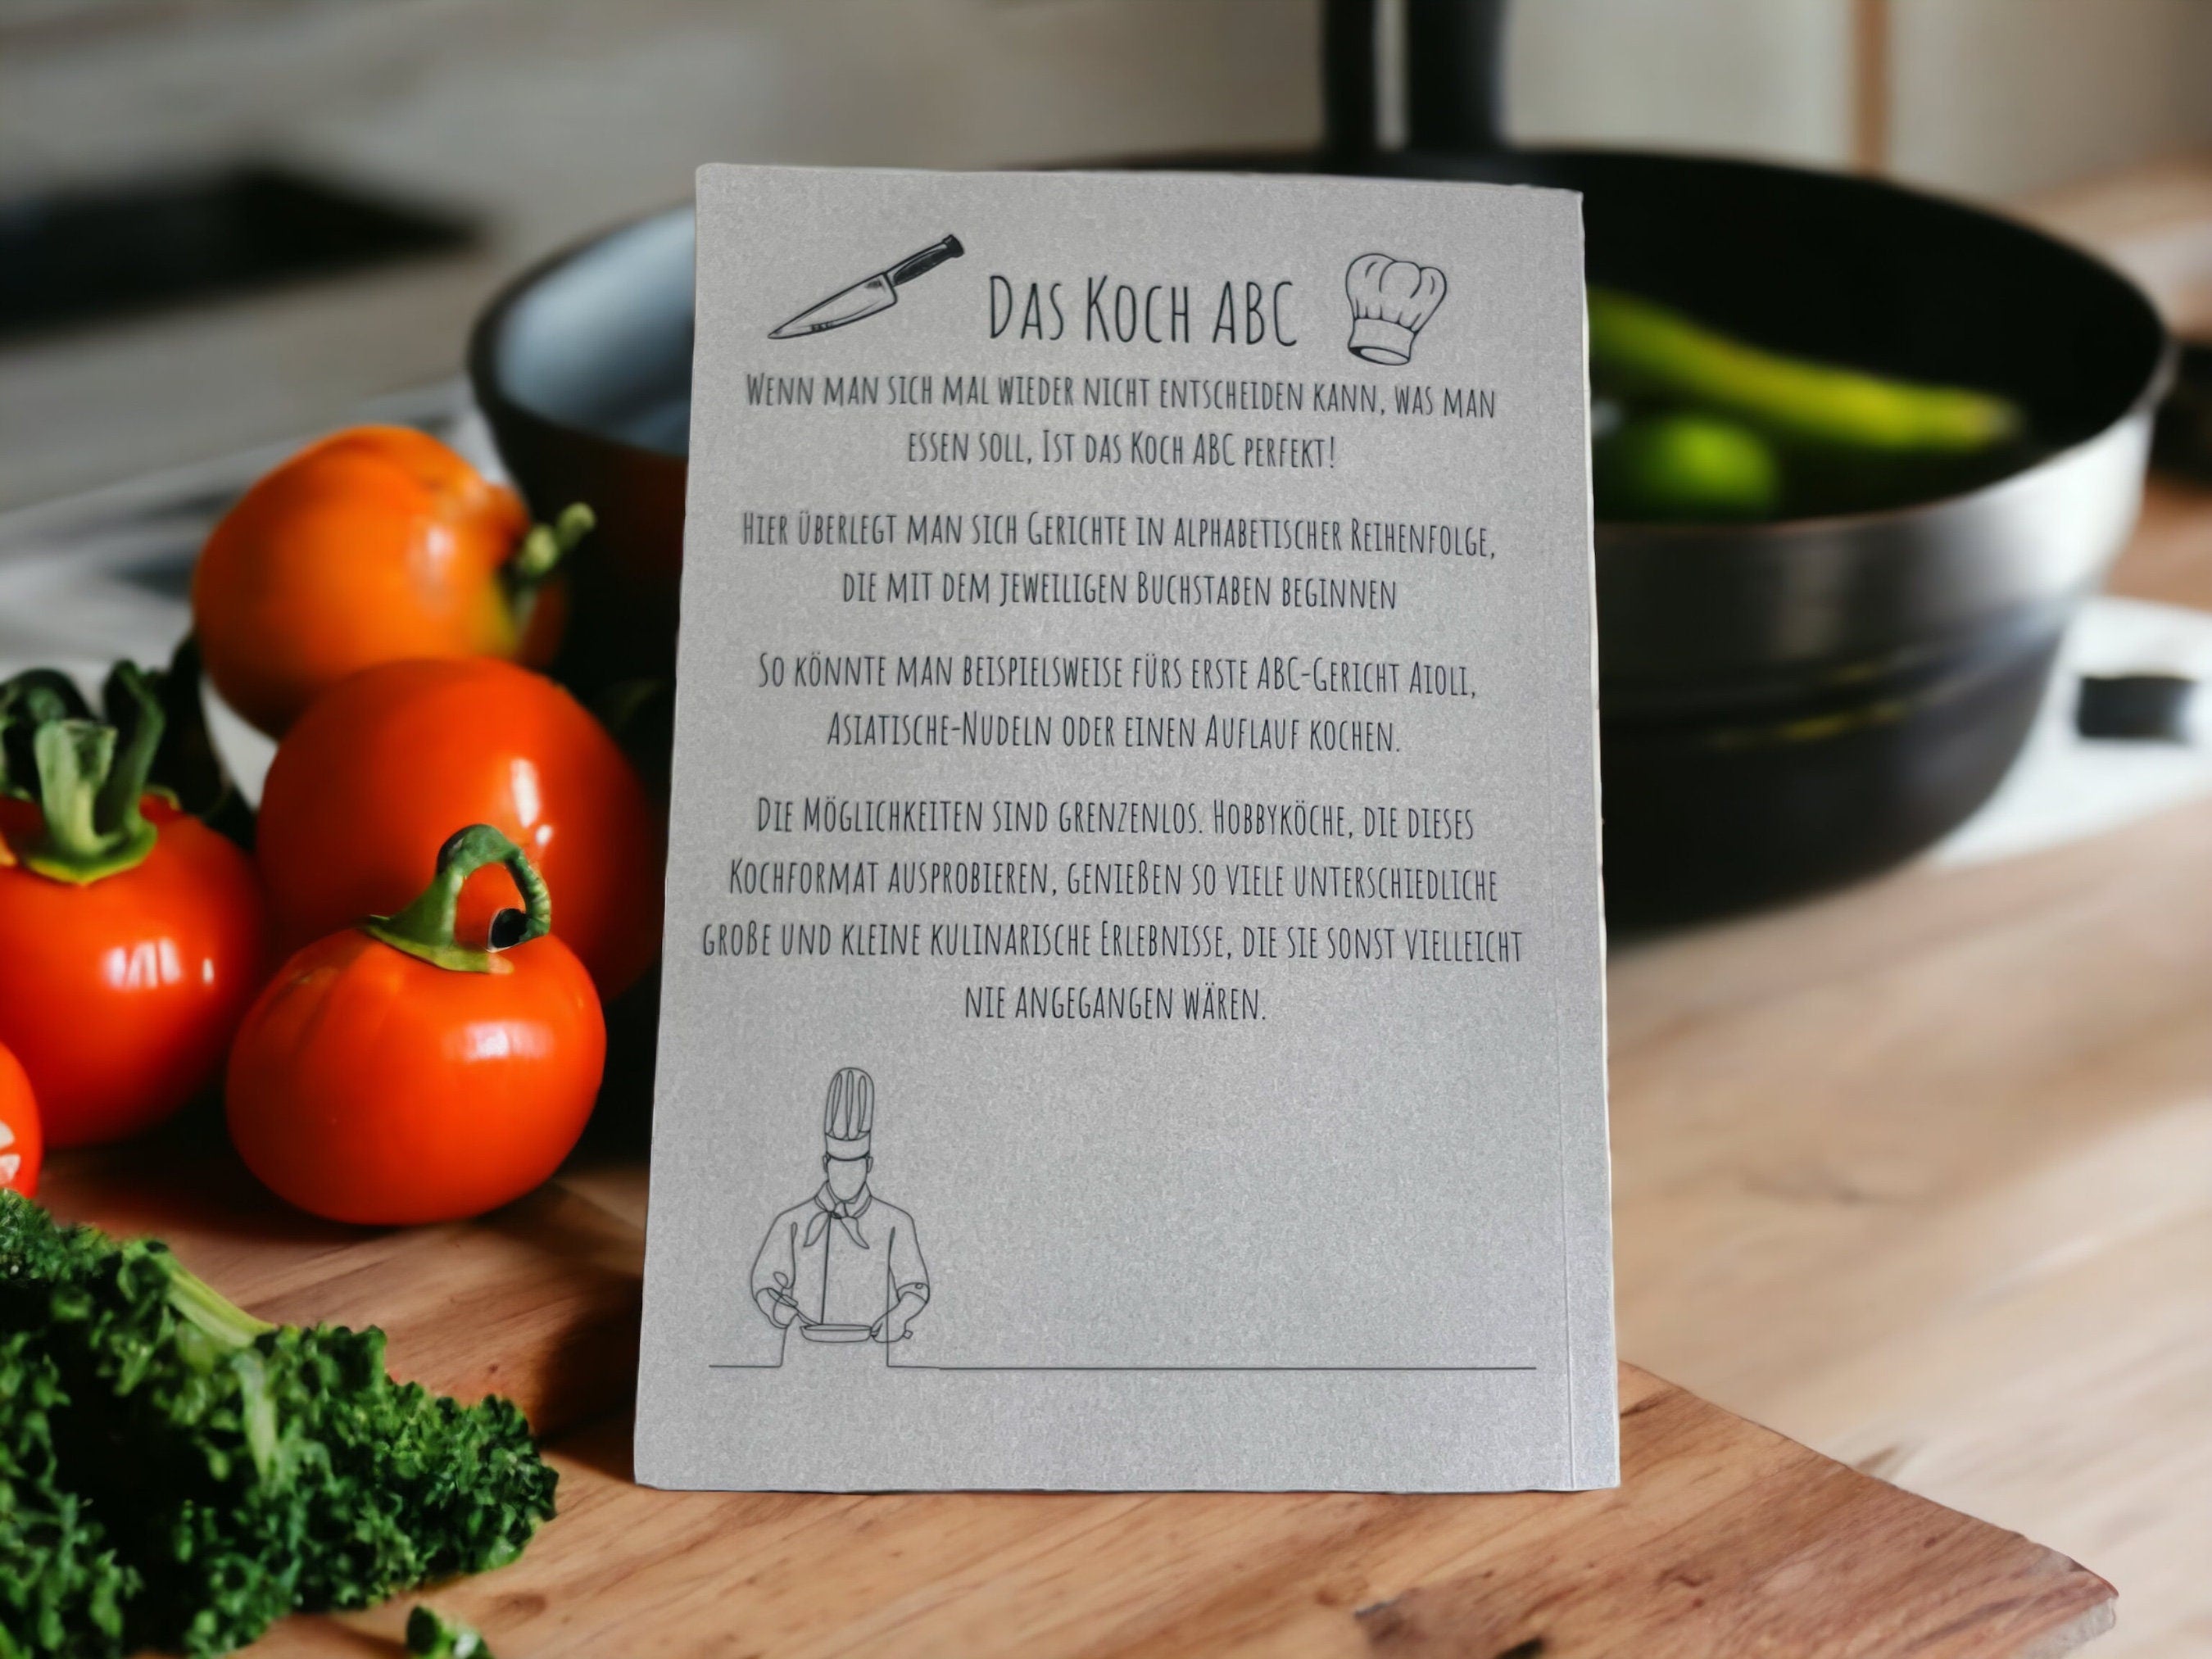 Das Koch ABC
Wenn man sich mal wieder nicht entscheiden kann, was man
essen soll, Ist das Koch ABC perfekt!
Hier überlegt man sich Gerichte in alphabetischer Reihenfolge,
die mit dem jeweiligen Buchstaben beginnen
So könnte man beispielsweise fürs erste ABC-Gericht Aioli,
Asiatische-Nudeln oder einen Auflauf kochen.
Die Möglichkeiten sind grenzenlos. Hobbyköche, die dieses
Kochformat ausprobieren, genießen so viele unterschiedliche
große und kleine kulinarische Erlebnisse, die sie sonst vielleicht
nie angegangen wären.